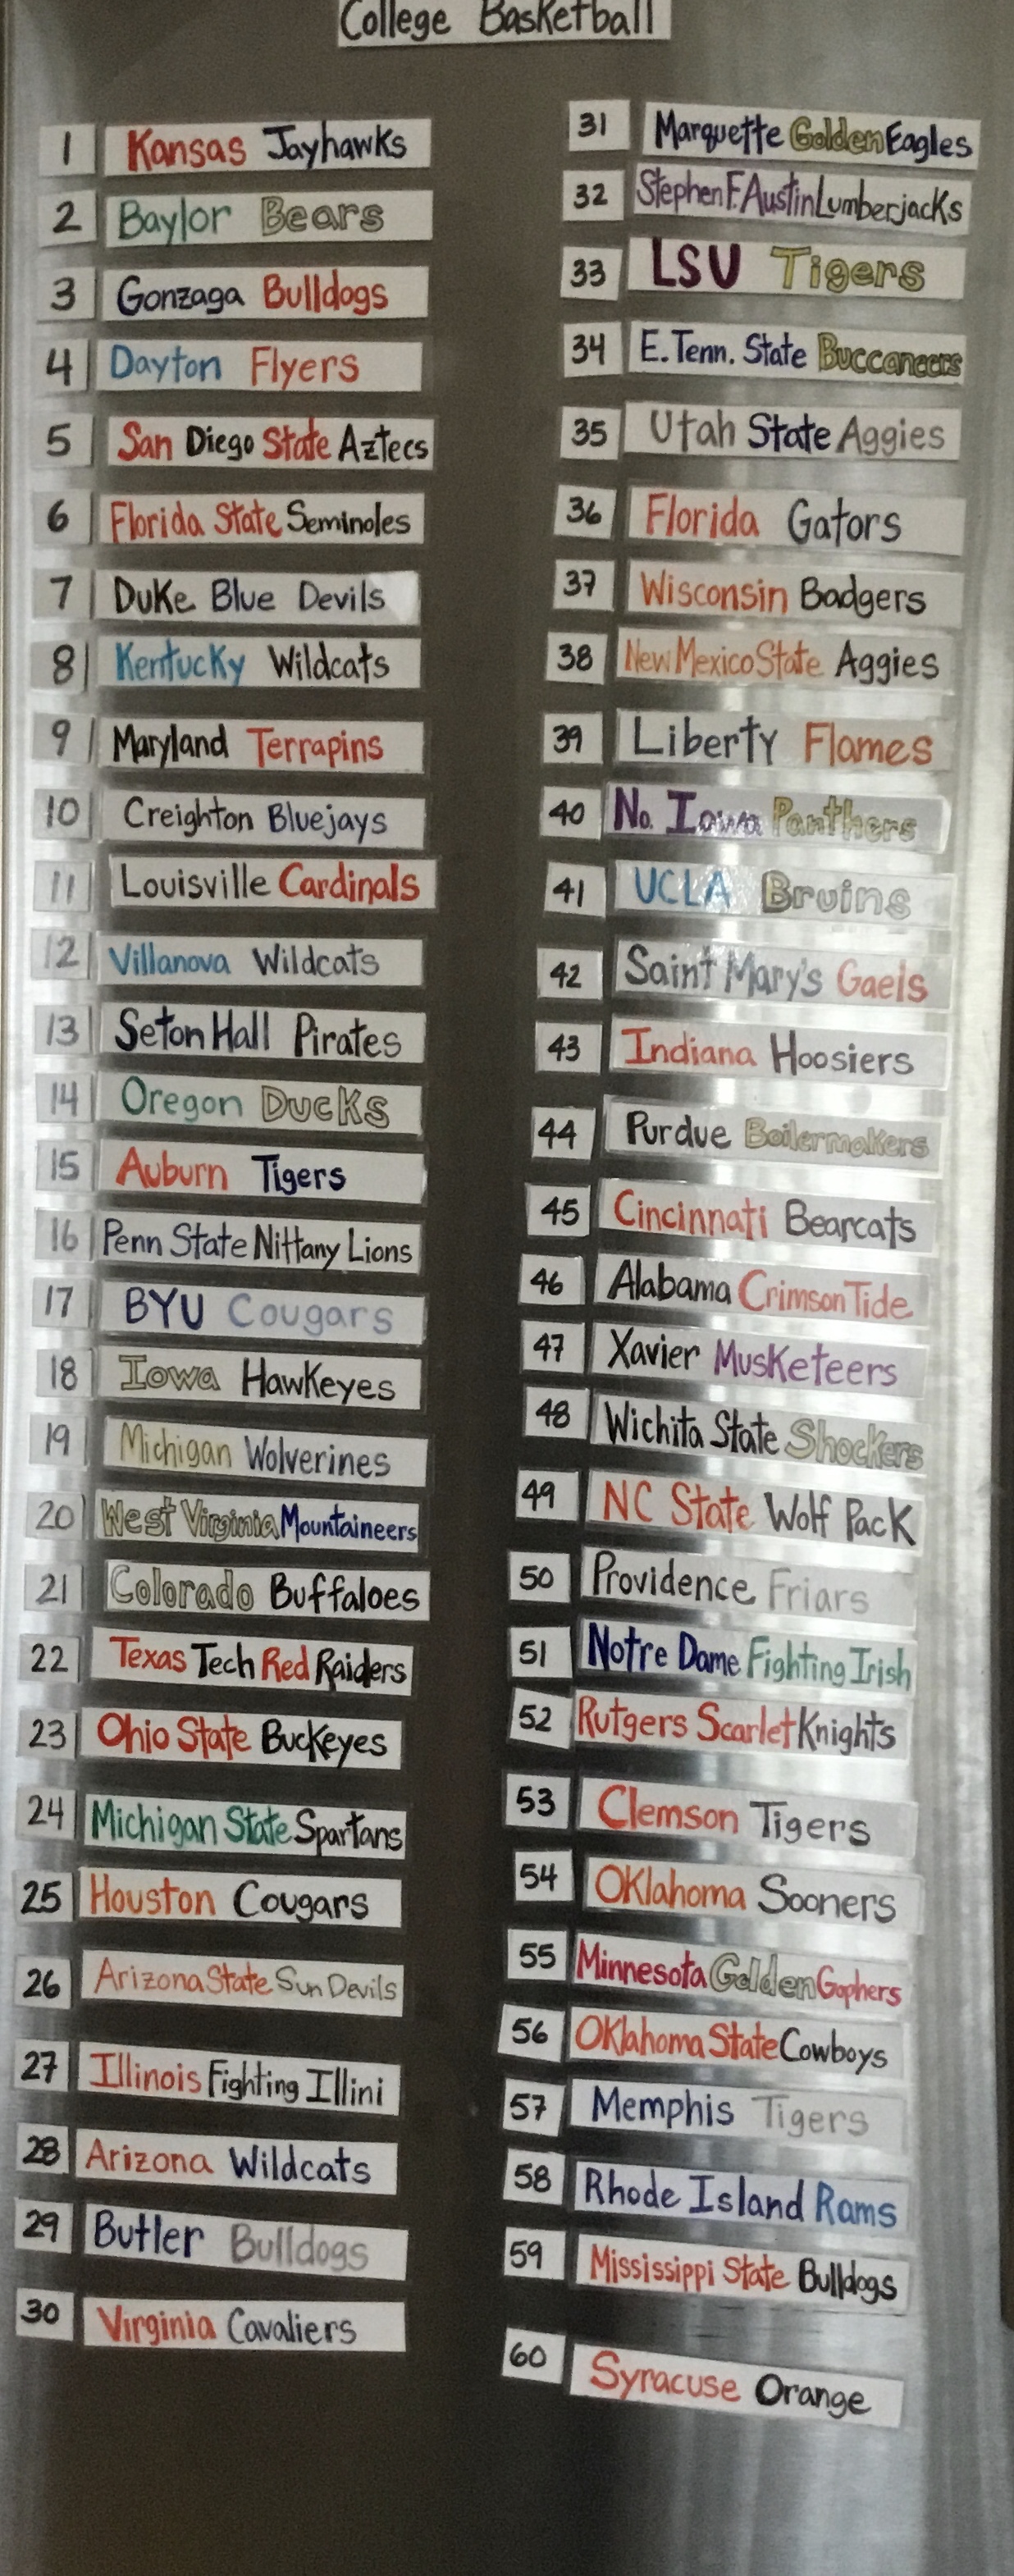 College Basketball
1 Kansas Jayhawks
2 Baylor Bears
3 Gonzaga Bulldogs
4 Dayton Flyers
5 San Diego State Aztecs
6 Florida State Seminoles
7 Duke Blue Devils
8 Kentucky Wildcats
9 Maryland Terrapins
10 Creighton Bluejays
11 Louisville Cardinals
12 Villanova Wildcats
13 Seton Hall Pirates
14 Oregon Ducks
15 Auburn Tigers
16 Penn State Nittany Lions
17 BYU Cougars
18 Iowa Hawkeyes
19 Michigan Wolverines
20 West Virginia Mountaineers
21 Colorado Buffaloes
22 Texas Tech Red Raiders
23 Ohio State Buckeyes
24 Michigan State Spartans
25 Houston Cougars
26 Arizona State Sun Devils
27 Illinois Fighting Illini
28 Arizona Wildcats
29 Butler Bulldogs
30 Virginia Cavaliers
31 Marquette Golden Eagles
32 Stephen F. Austin Lumberjacks
33 LSU Tigers
34 E. Tenn. State Buccaneers
35 Utah State Aggies
36 Florida Gators
37 Wisconsin Badgers
38 New Mexico State Aggies
39 Liberty Flames
40 No. Iowa Panthers
41 UCLA Bruins
42 Saint Mary's Gaels
43 Indiana Hoosiers
44 Purdue Boilermakers
45 Cincinnati Bearcats
46 Alabama Crimson Tide
47 Xavier Musketeers
48 Wichita State Shockers
49 NC State Wolf Pack
50 Providence Friars
51 Notre Dame Fighting Irish
52 Rutgers Scarlet Knights
53 Clemson Tigers
54 Oklahoma Sooners
55 Minnesota Golden Gophers
56 Oklahoma State Cowboys
57 Memphis Tigers
58 Rhode Island Rams
59 Mississippi State Bulldogs
60 Syracuse Orange